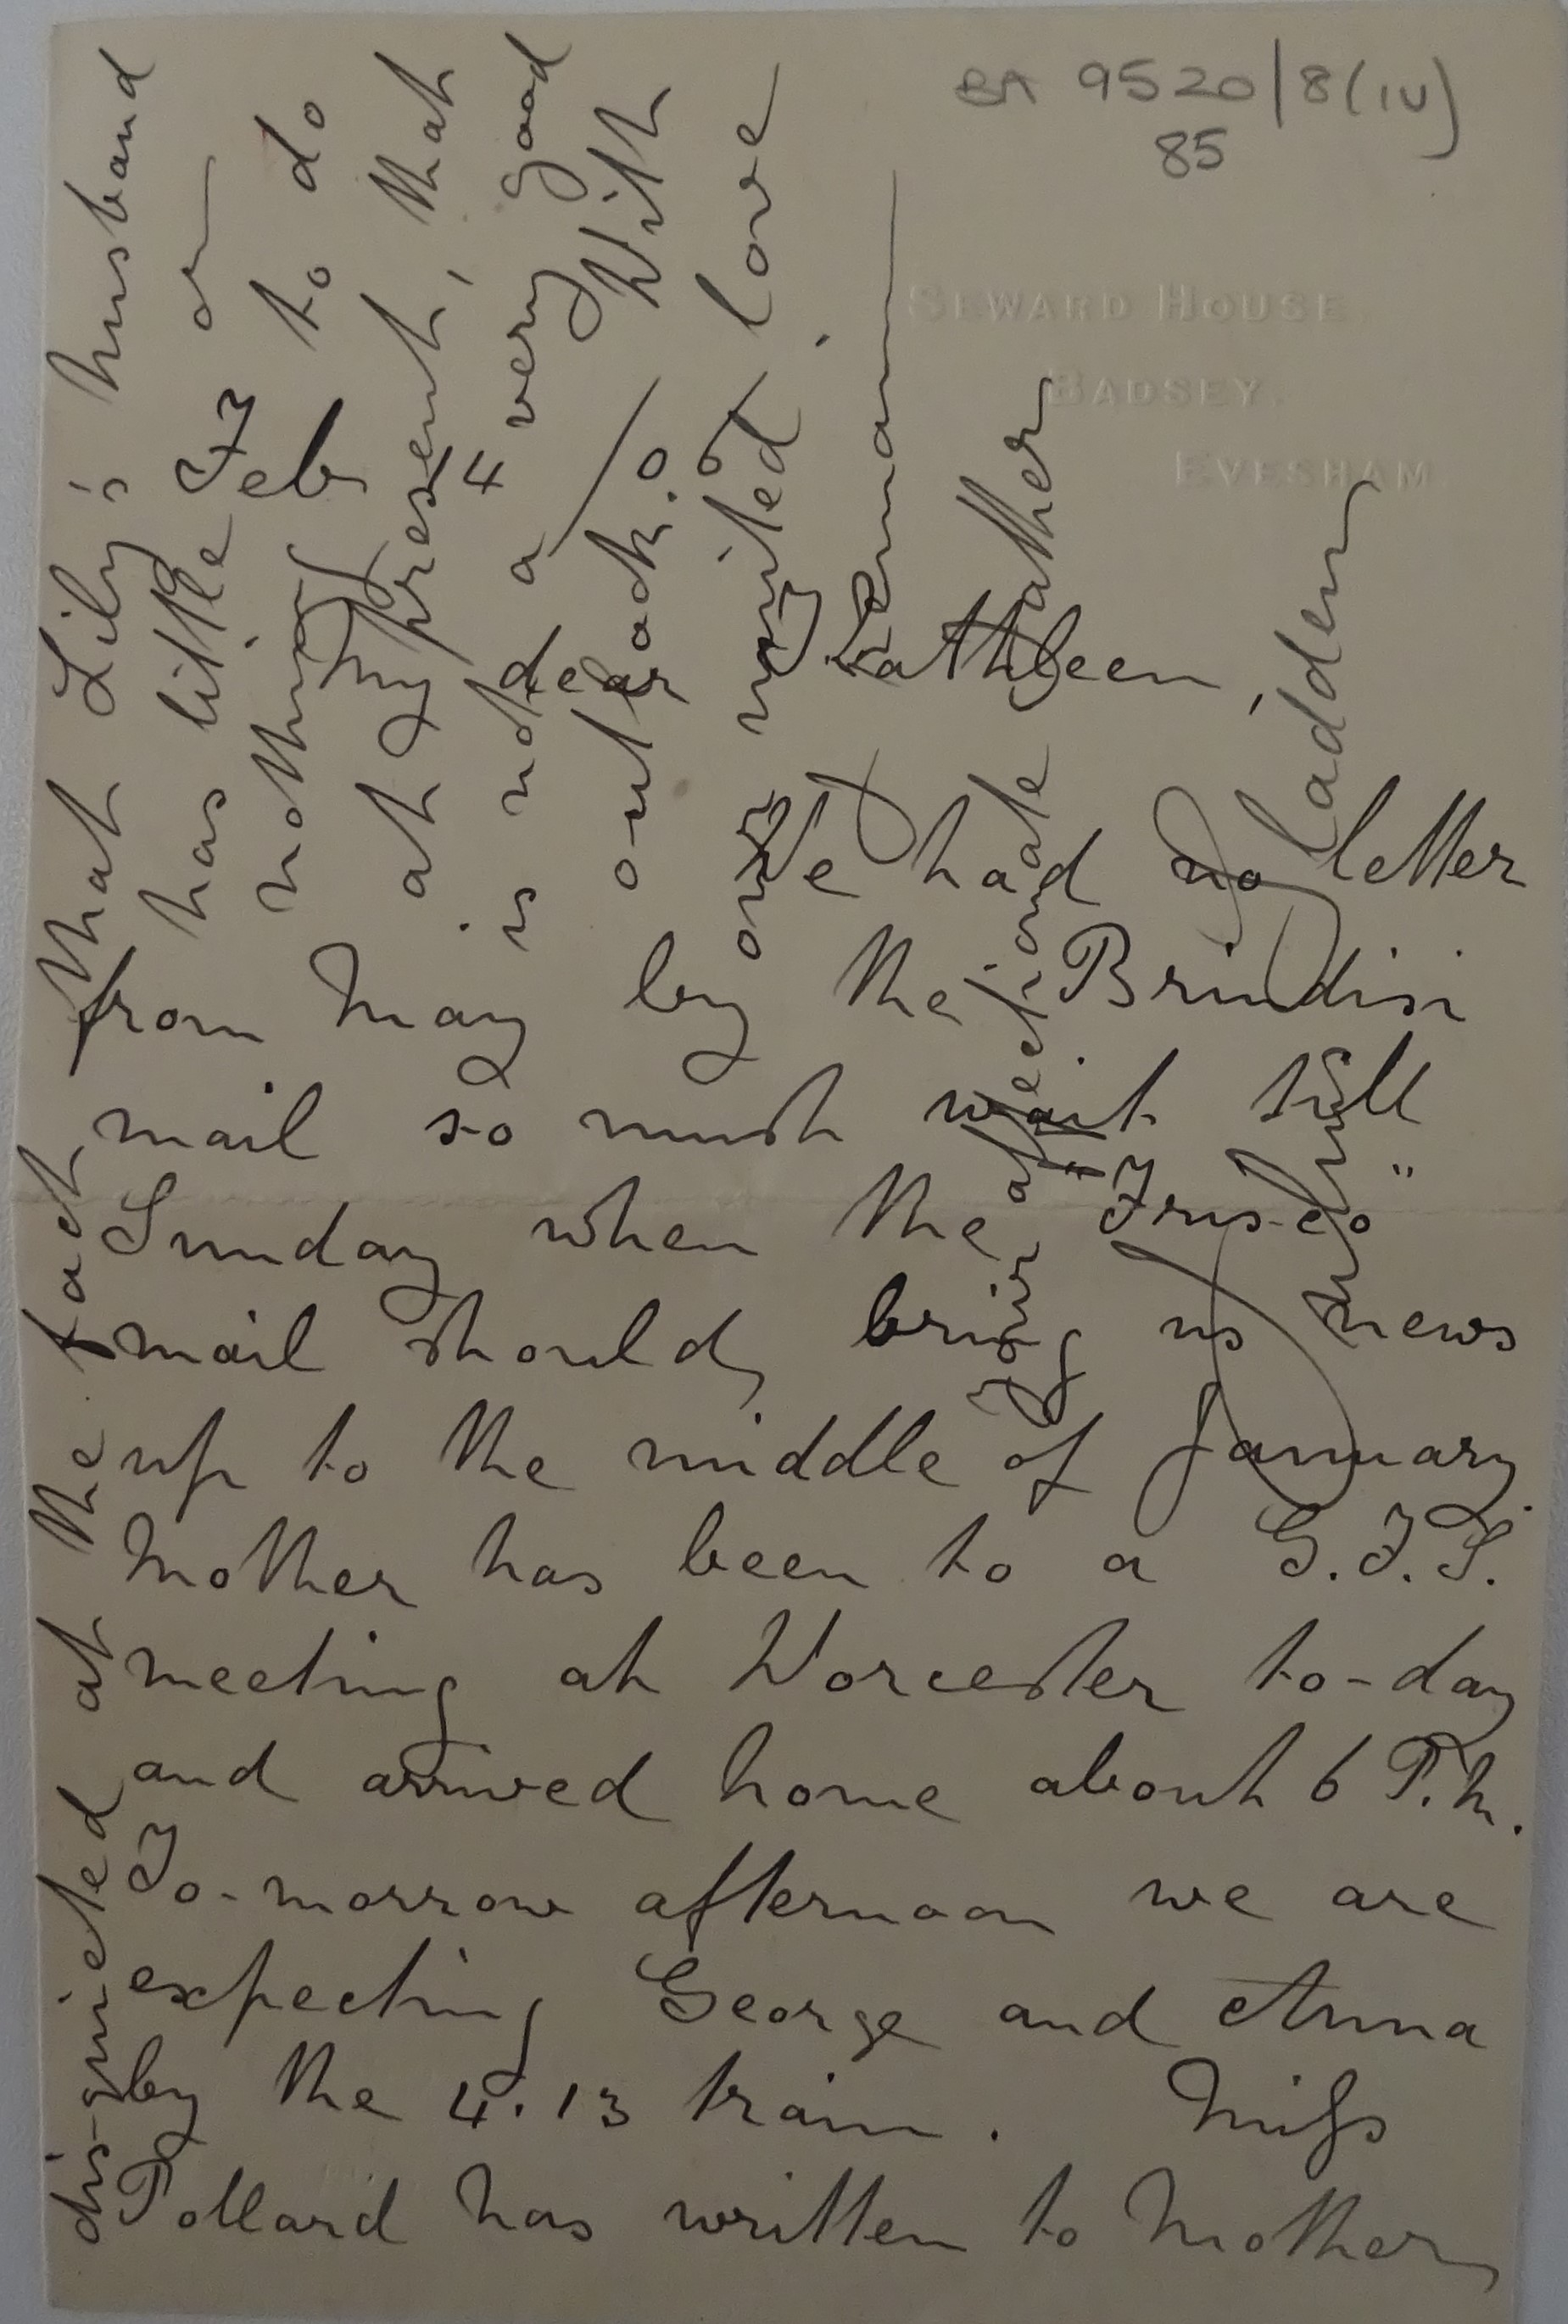 BA 9520/8(IV)
85
SEWARD HOUSE
BADSEY.
EVESHAM.
Feb 4/06
My dear Kathleen,
We had no letter
from May by the Brindisi
mail so must wait till
Sunday when the "Frisco"
mail should bring us news
up to the middle of January.
Mother has been to a G.F.S.
meeting at Worcester to-day
and arrived home about 6 P.M.
To-morrow afternoon we are
expecting George and Anna
by the 4.13 train. Miss
Pollard has written to Mother,
disquieted at the fact that Lily's husband
has little or
nothing to do
at present, that
is not a very good
outlook. With
our united love
I remain
your affectionate father
Julius Sladden